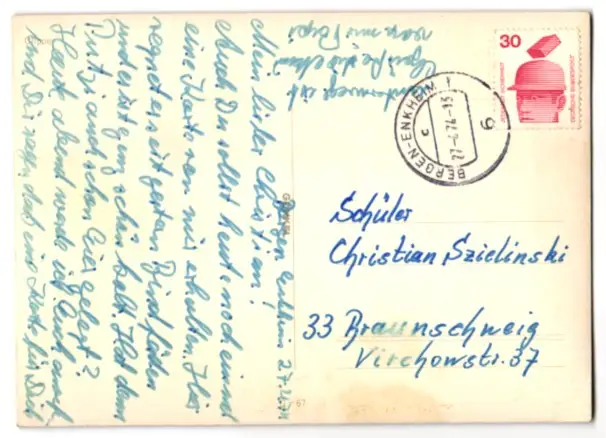 Bergen Enkheim 27.4.1974
Mein lieber Christian!
Auch Du sollst heute noch einmal
eine Karte von mir erhalten. Hier
regnet es seit gestern Bindfäden
und es ist ganz schön kalt. Hat denn
Putzi auch schon Eier gelegt?
Heute Abend werde ich Euch anrufen
und Dir sagen, daß eine Karte für Dich
unterwegs ist
Grüße
von mir Papi
30
DEUTSCHE BUNDESPOST
BERGEN-ENKHEIM 1
27.-4.74-13
c
6
Schüler
Christian Szielinski
33 Braunschweig
Virchowstr. 37
67